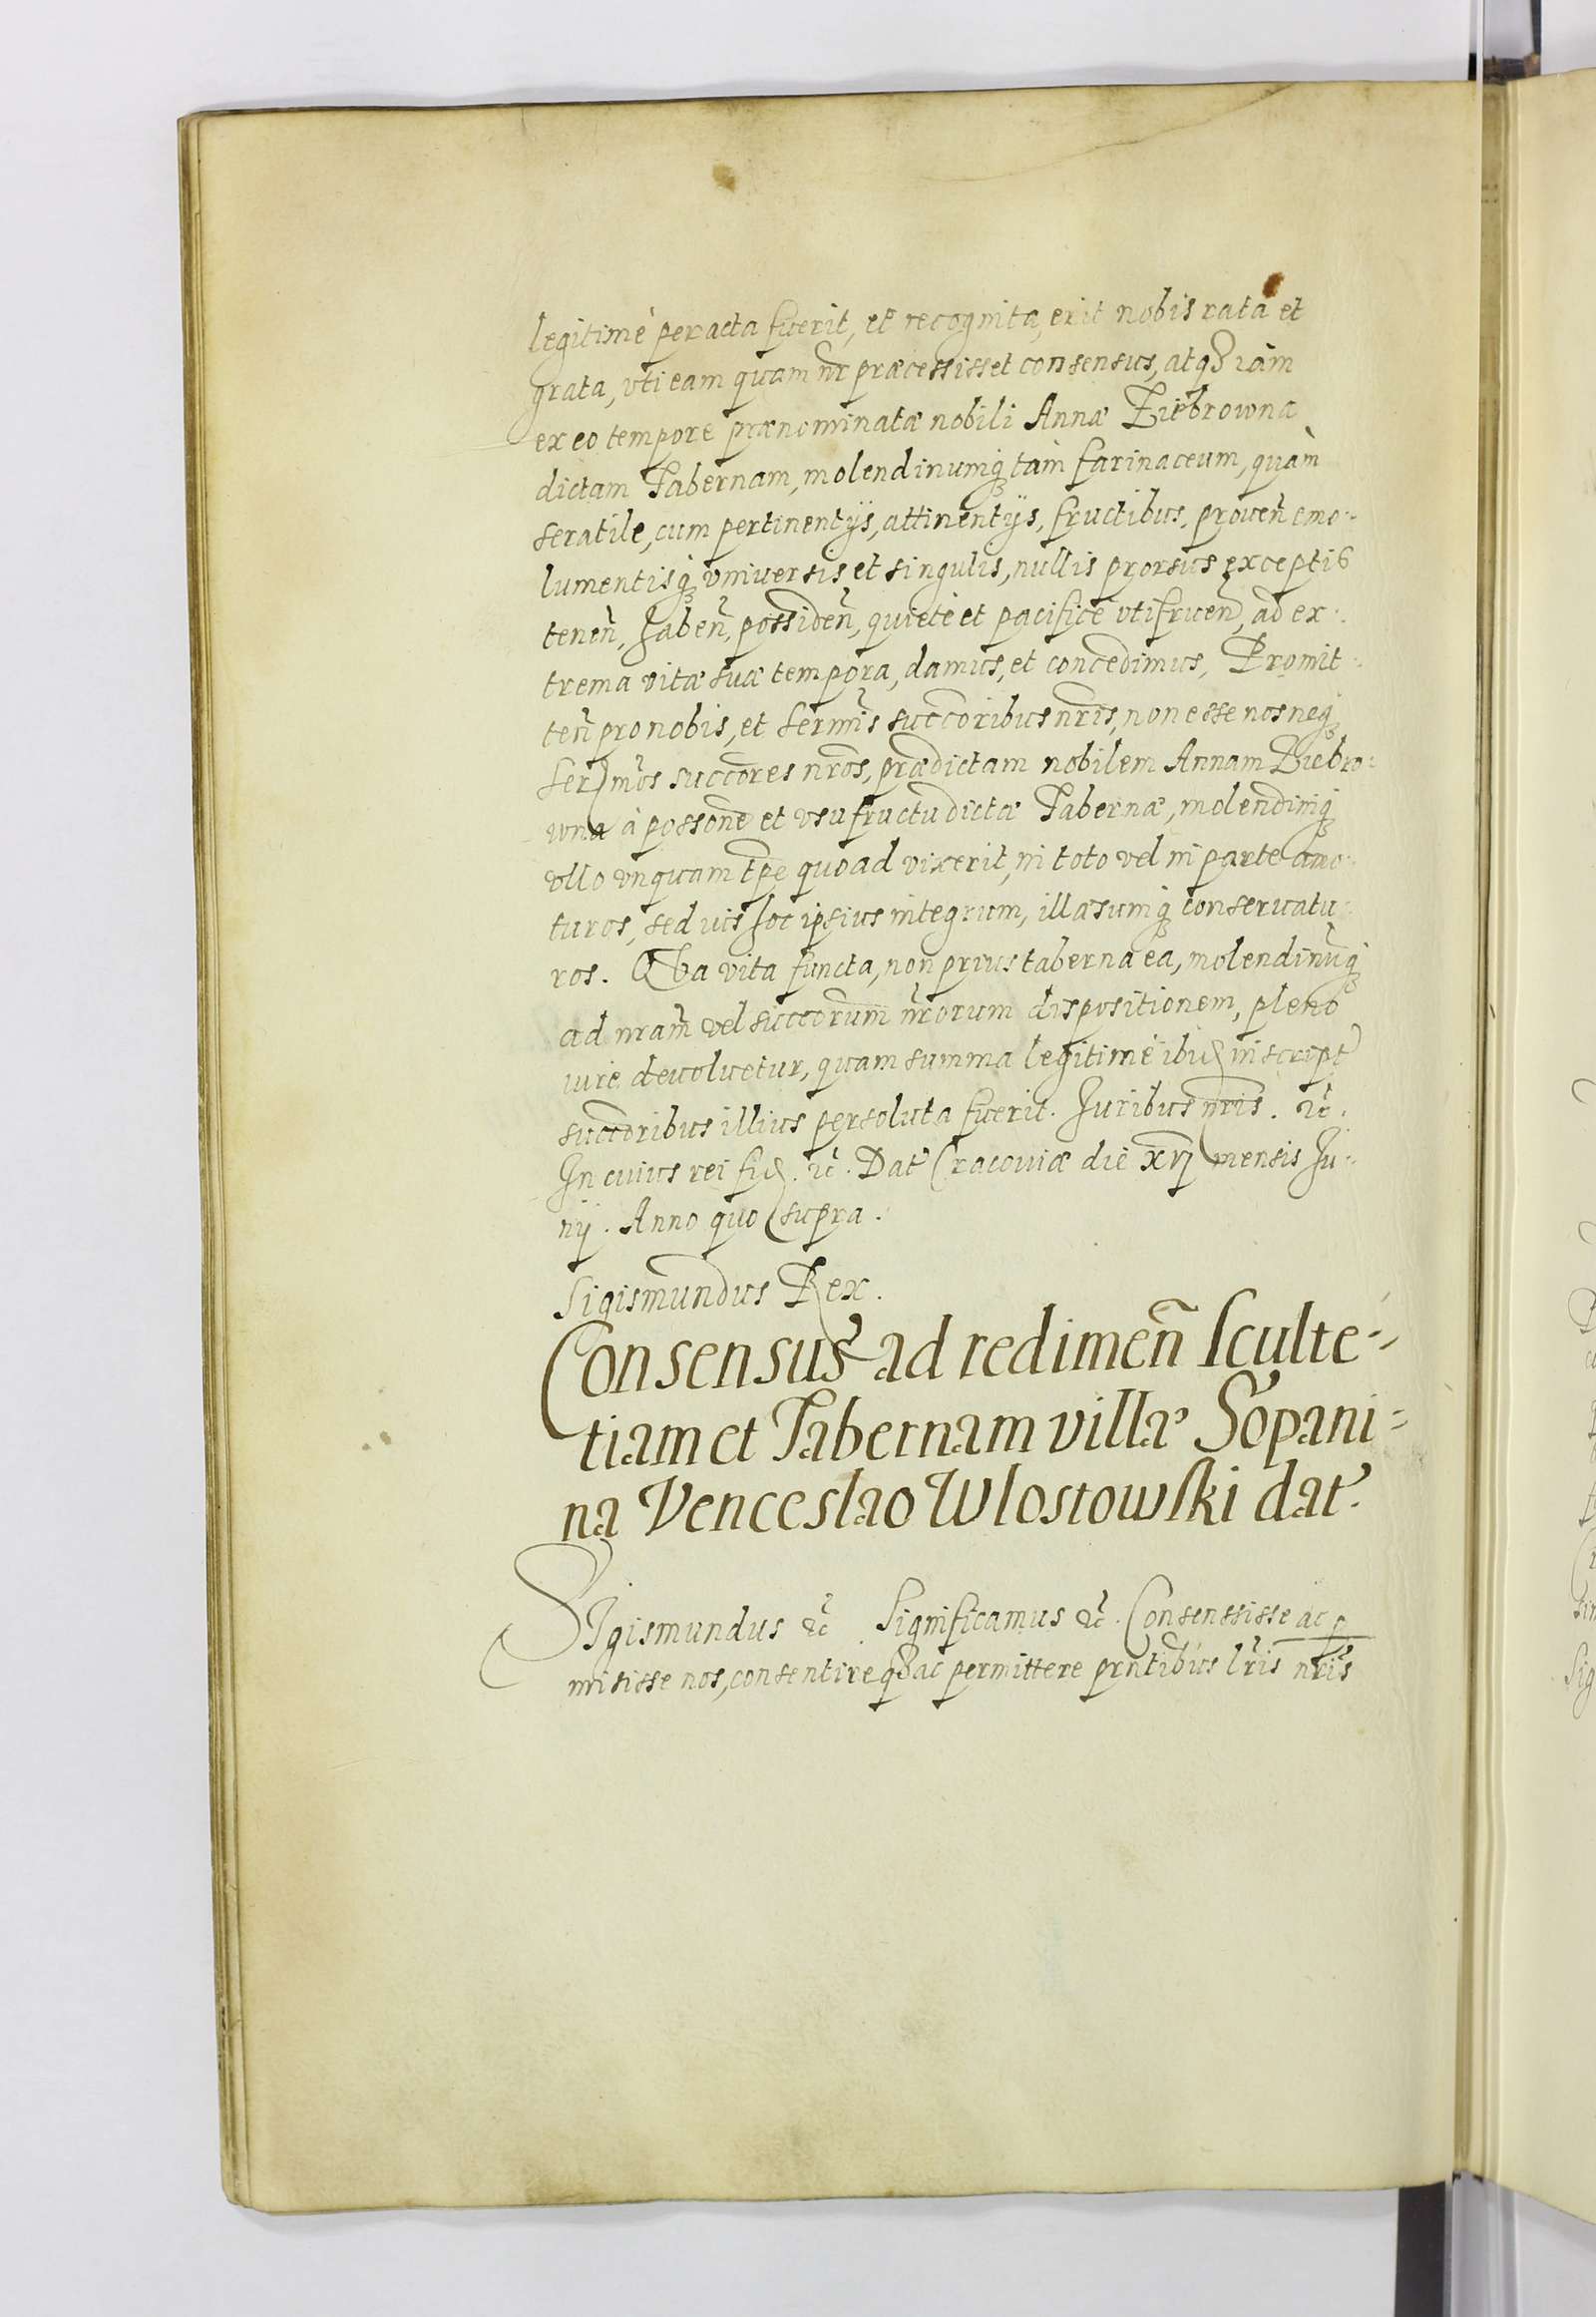 legitimè peracta fuerit, et recognita, erit nobis rata et
grata, vti eam quam nr̃ præcessisset consensus, atq3 iàm
ex eo tempore prænominatæ nobili Annæ Biebrowna
dictam Tabernam, molendinumq3 tàm farinaceum, quàm
serratile, cum pertinentijs, attinentijs, fructibus, prouen̄ emo-
lumentisq3 vniuersis et singulis, nullis prorsus exceptis
tenen̄, haben̄, possiden̄, quietè et pacificè vtifruen̄, ad ex-
trema vitæ suæ tempora, damus, et concedimus, Promit-
ten̄ pro nobis, et sermis̃ succoribus nris̃, non esse nos neq3
sermos̃ succores̃ nros̃, prædictam nobilem Annam Biebro-
wna à possone̅ et vsufructu dictæ Tabernæ, molendiniq3
vllo vnquam tp̃e quoad vixerit, in toto vel in parte amo-
turos, sed uis hoc ipsius integrum, illæsumq3 conseruatu-
ros. Ea vita functa, non prius taberna ea, molendinūq3
ad nram̃ vel succorum̃ nr̃orum dispositionem, pleno
iure deuoluetur, quam summa legitimè ibid inscript
succoribus̃ illius persoluta fuerit. Iuribus nris̃. ꝛc̃.
In cuius rei fid. ꝛc̃. Dat Cracouiæ die xvj mensis Iu-
nij. Anno quo supra.
Sigismundus Rex.
Consensus ad redimen̄ sculte-
tiam et Tabernam villæ Sopani-
na Venceslao Wlostowski dat.
SIgismundus ꝛc̃ Significamus ꝛc̃. Consensisse ac p̱
misisse nos, consentireq3 ac permittere prñtibus lr̃is nris̃